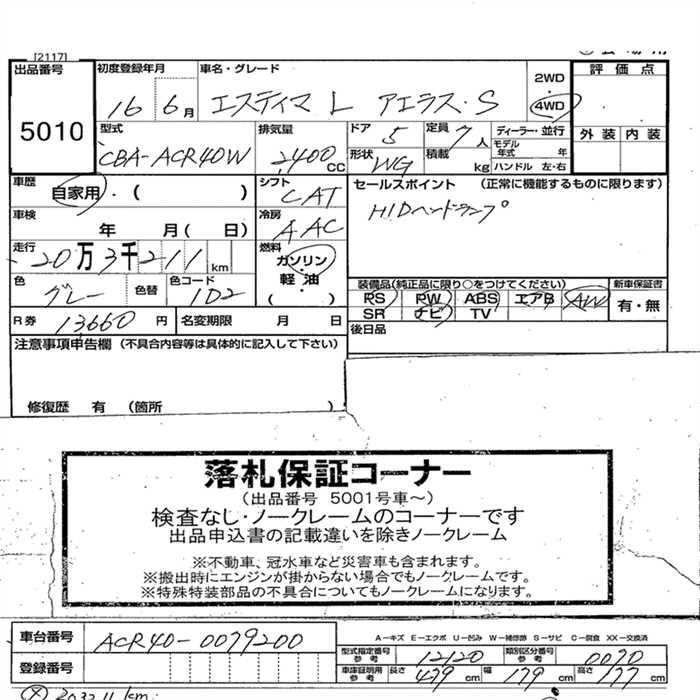 [2117]
出品番号 初度登録年月 車名・グレード 評価点
16 6月 エスティマ L アエラス・S 2WD 4WD
5010 型式 排気量 ドア 5 定員 7人 ディーラー・並行 外装 内装
CBA-ACR40W 2400 CC 形状 WG 積載 kg モデル年式 年
ハンドル 左・右
車歴 自家用・( ) シフト CAT セールスポイント (正常に機能するものに限ります)
車検 年 月(日) 冷房 AAC HIDヘッドランプ
走行 20万3千211km 燃料 ガソリン・軽油 ( )
色 グレー 色替 色コード 1D2 装備品(純正品に限り○をつけてください) 新車保証書
PS PW ABS エアB AW 有・無
SR ナビ TV
R券 13660円 名変期限 月 日 後日品
注意事項申告欄 (不具合内容等は具体的に記入して下さい)
修復歴 有 (箇所 )
落札保証コーナー
(出品番号 5001号車〜)
検査なし・ノークレームのコーナーです
出品申込書の記載違いを除きノークレーム
※不動車、冠水車など災害車も含まれます。
※搬出時にエンジンが掛からない場合でもノークレームです。
※特殊特装部品の不具合についてもノークレームになります。
車台番号 ACR40-0079200 A-キズ E-エクボ U-凹み W-補修跡 S-サビ C-腐食 XX-交換済
型式指定番号 参考 12120 類別区分番号 参考 0070
登録番号 車庫証明用 参考 長さ 479cm 幅 179cm 高さ 177cm